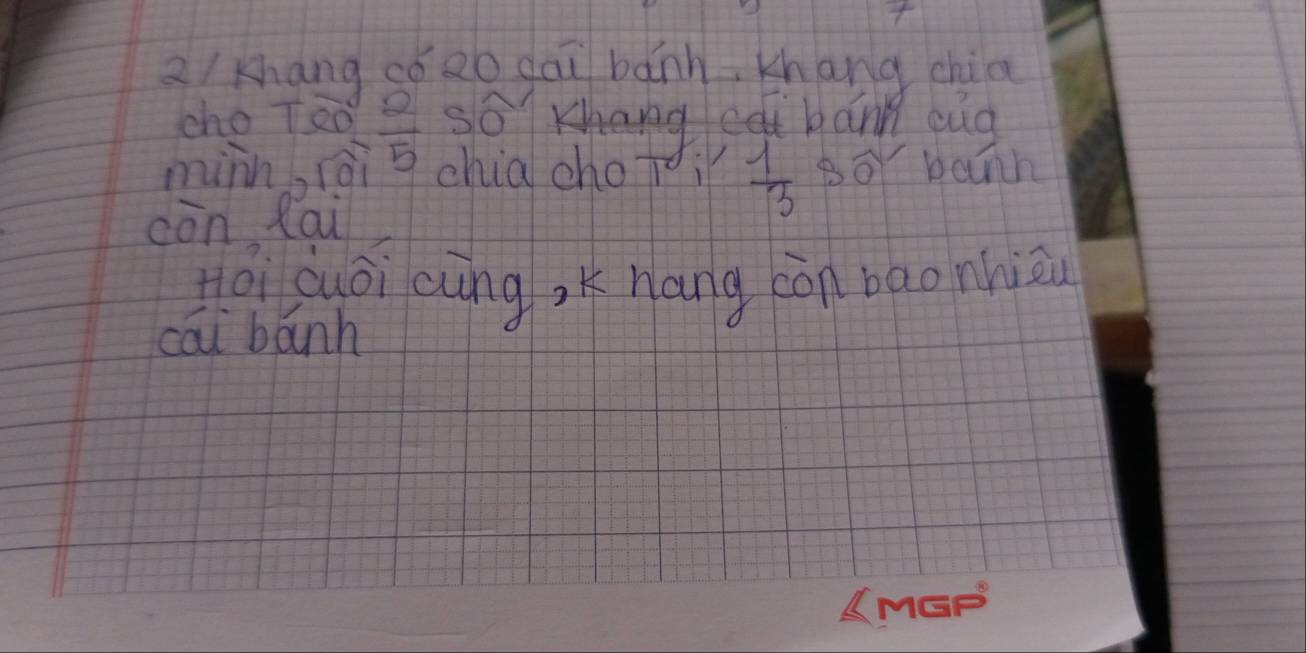 2/ Khang có 20 cái bánh. Khang chia
cho Tèo 2/5 số Khang cái bánh của
mình, rồi chia cho Tí 1/3 số bánh
còn lại
Hỏi cuối cùng, Khang còn bao nhiêu
cái bánh
MGP®